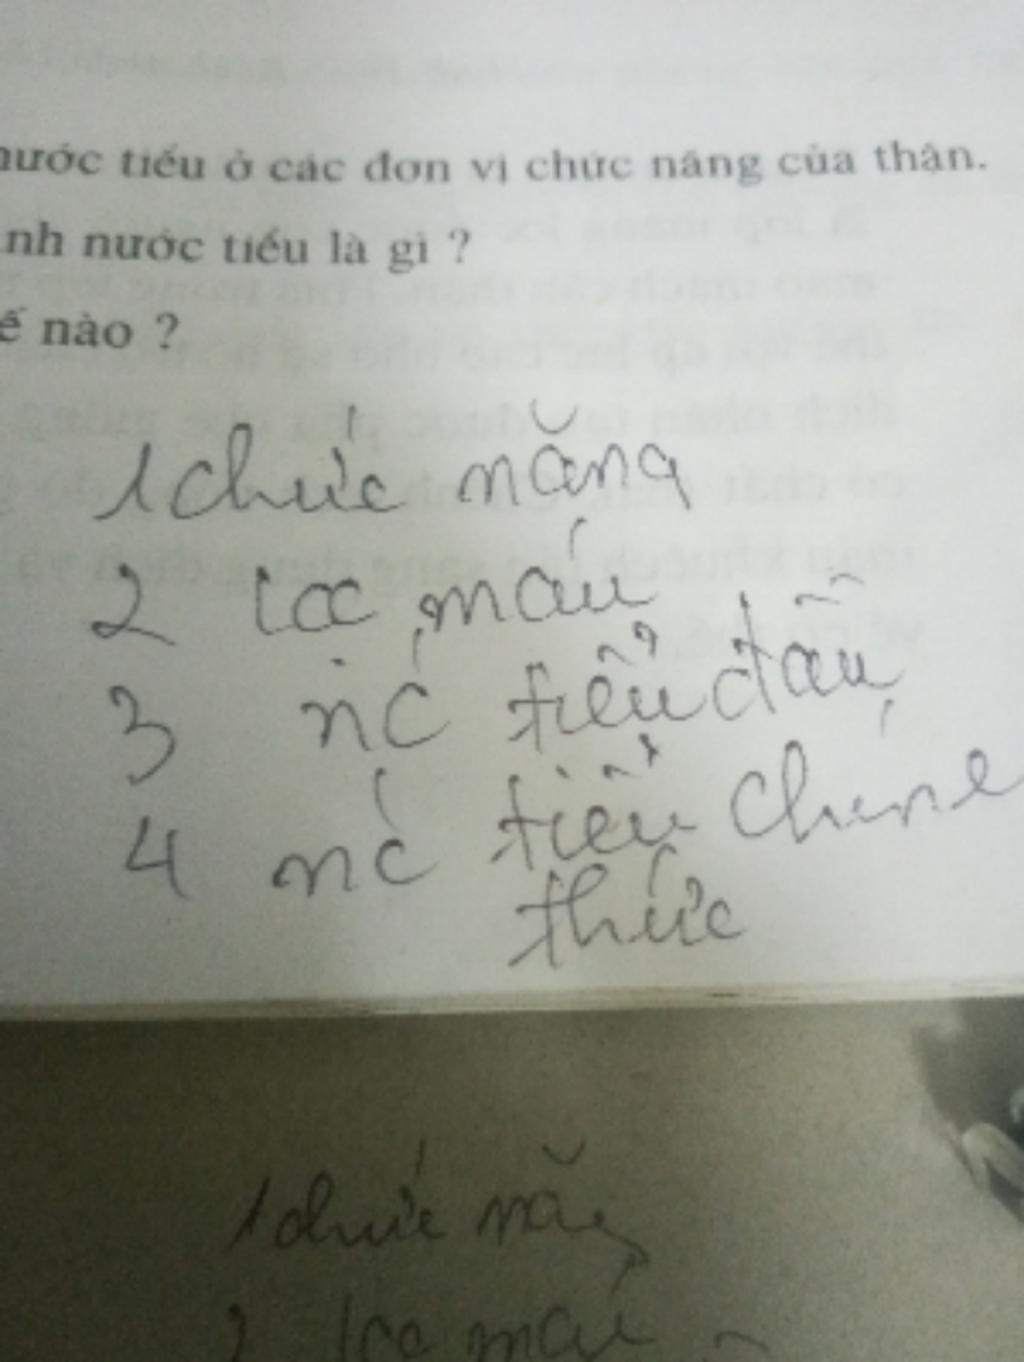 nước tiểu ở các đơn vị chức năng của thận.
nh nước tiểu là gì ?
ế nào ?
1 chức năng
2 lọc máu
3 nc tiểu đầu
4 nc tiểu chính
thức
1 chức năng
2 lọc máu